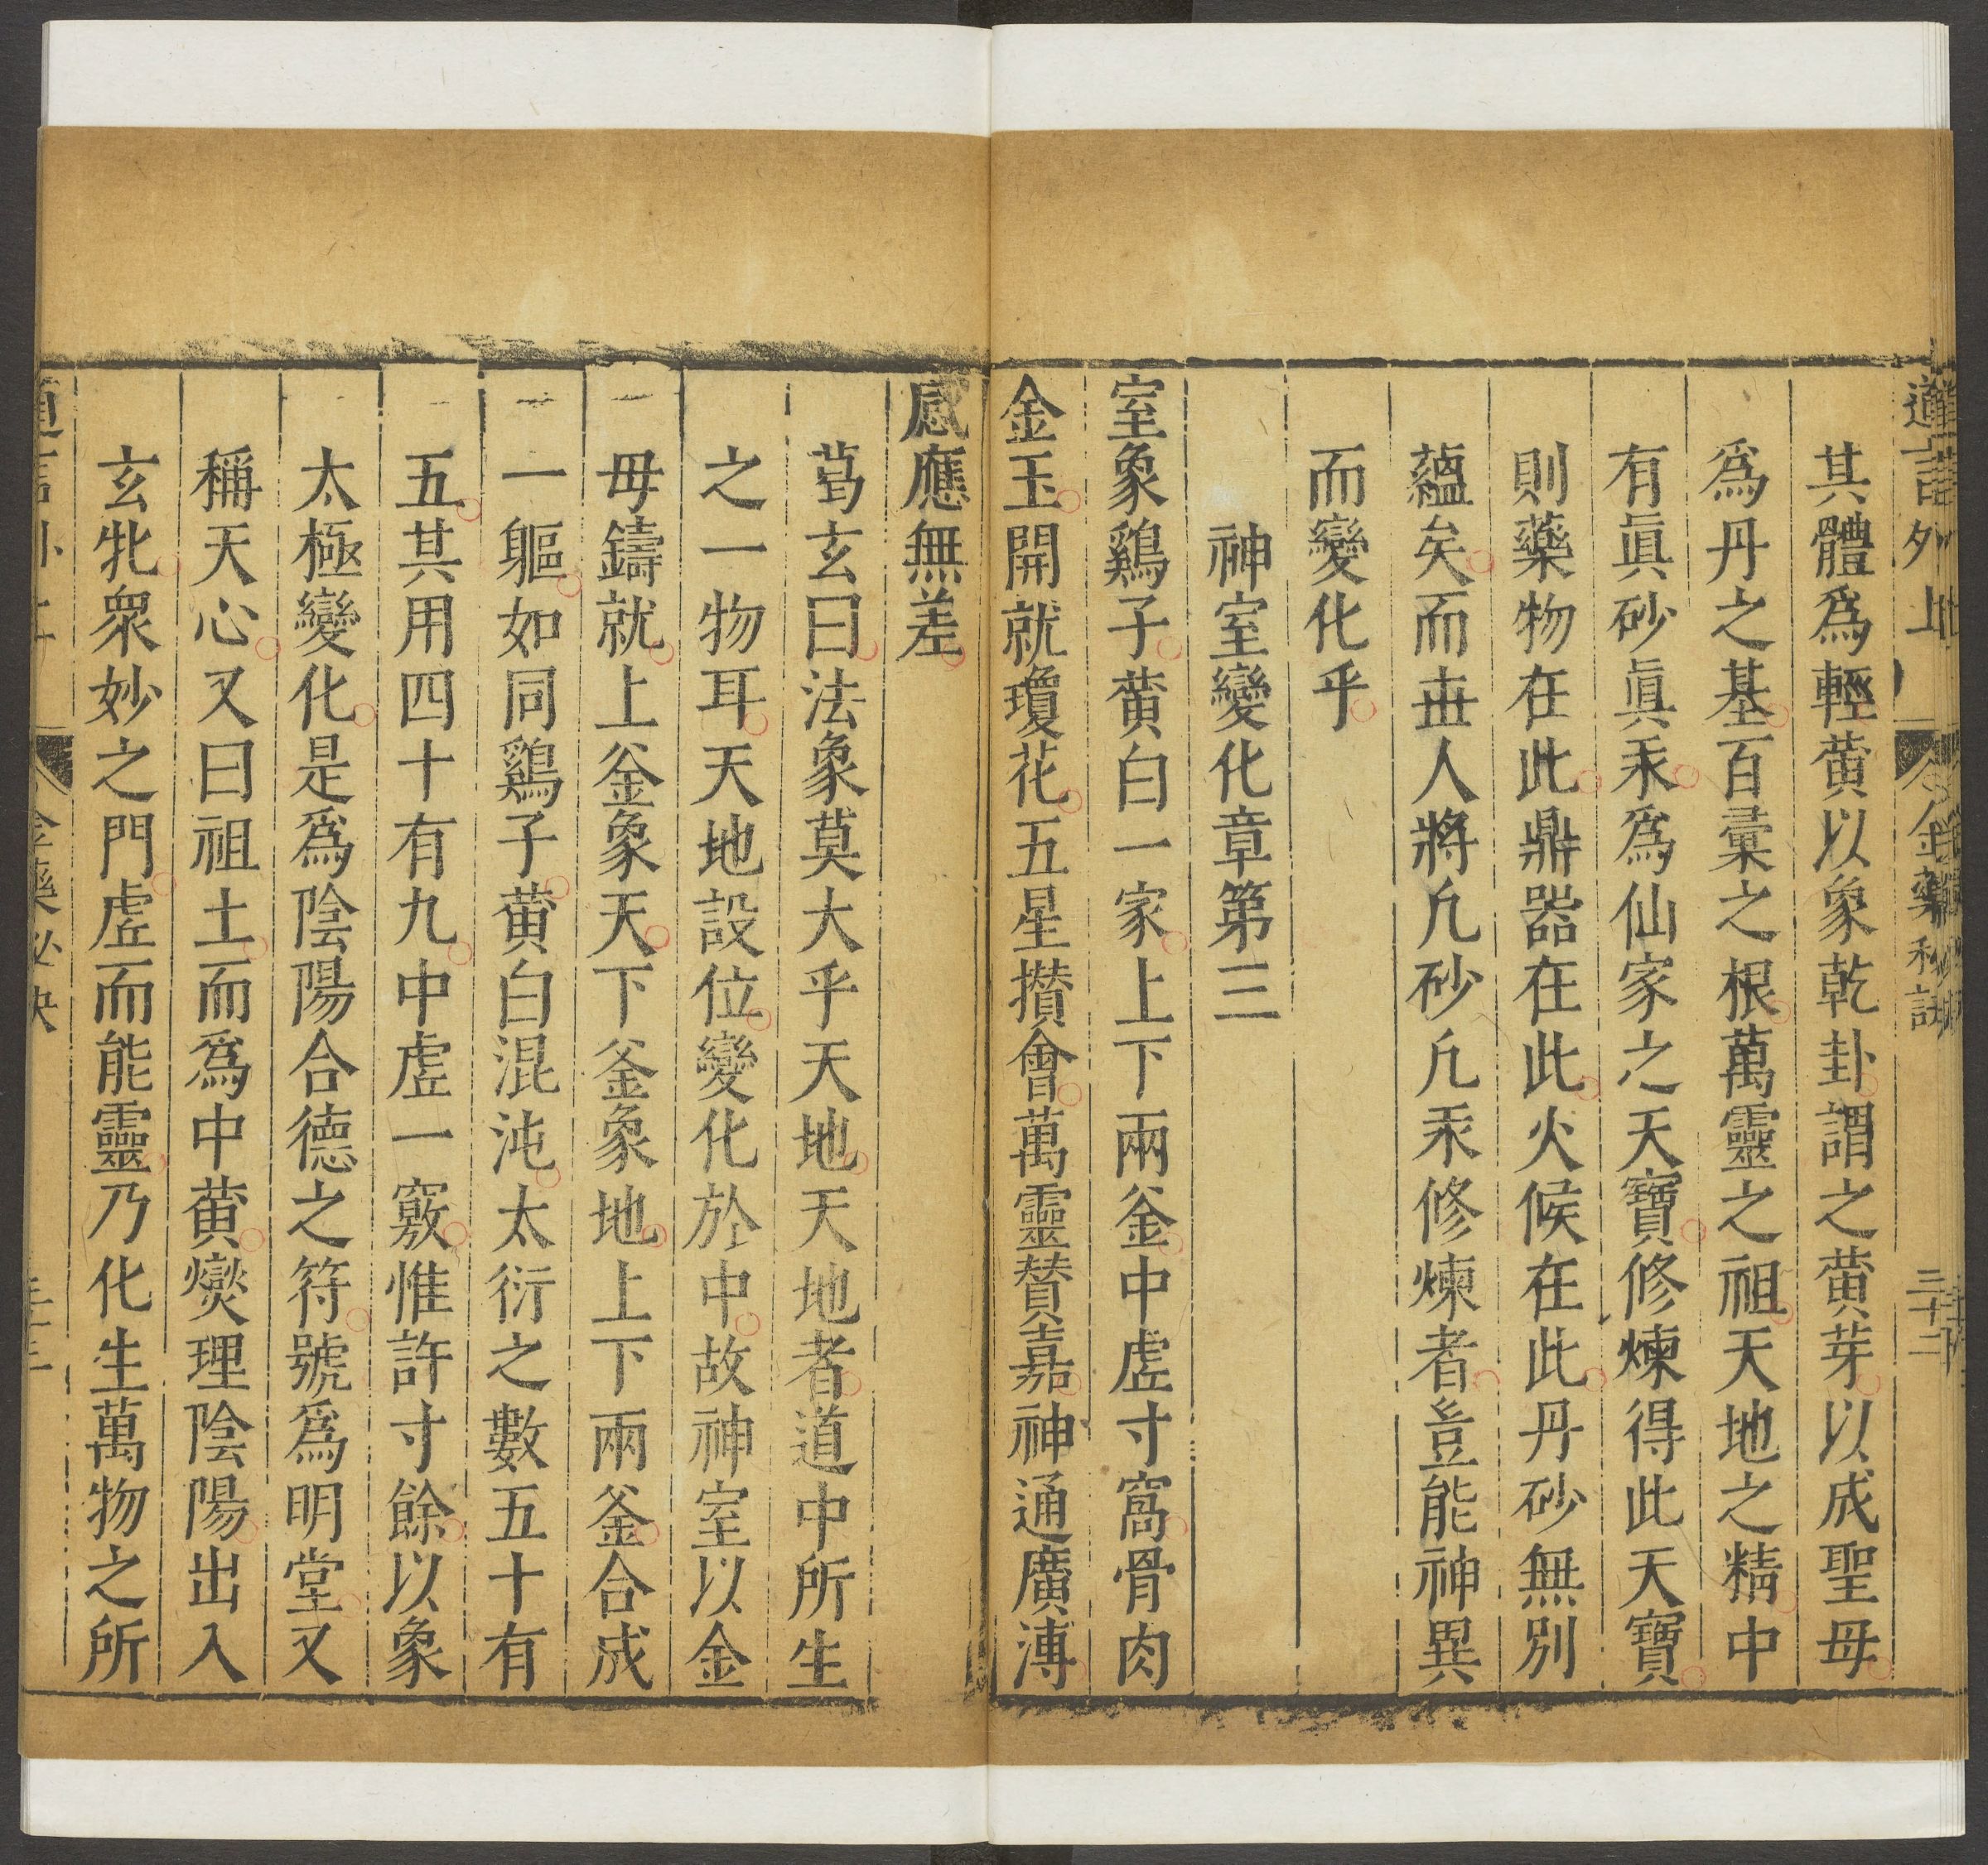 其體爲輕黄以象乾卦謂之黄芽以成聖母
爲丹之基百彙之根萬靈之祖天地之精中
有眞砂眞汞爲仙家之天寶修煉得此天寶
則藥物在此鼎器在此火候在此丹砂無別
蘊矣而丗人將凢砂凢汞修煉者豈能神異
而變化乎
神室變化章第三
室象鷄子黄白一家上下兩釜中虗寸窩骨肉
金玉開就瓊花五星攅會萬靈賛嘉神通廣溥
感應無差
葛玄曰法象莫大乎天地天地者道中所生
之一物耳天地設位變化於中故神室以金
母鑄就上釜象天下釜象地上下兩釜合成
一軀如同鷄子黄白混沌太衍之數五十有
五其用四十有九中虗一竅惟許寸餘以象
太極變化是爲陰陽合德之符號爲明堂又
稱天心又曰祖土而爲中黄爕理陰陽出入
玄牝衆妙之門虗而能靈乃化生萬物之所